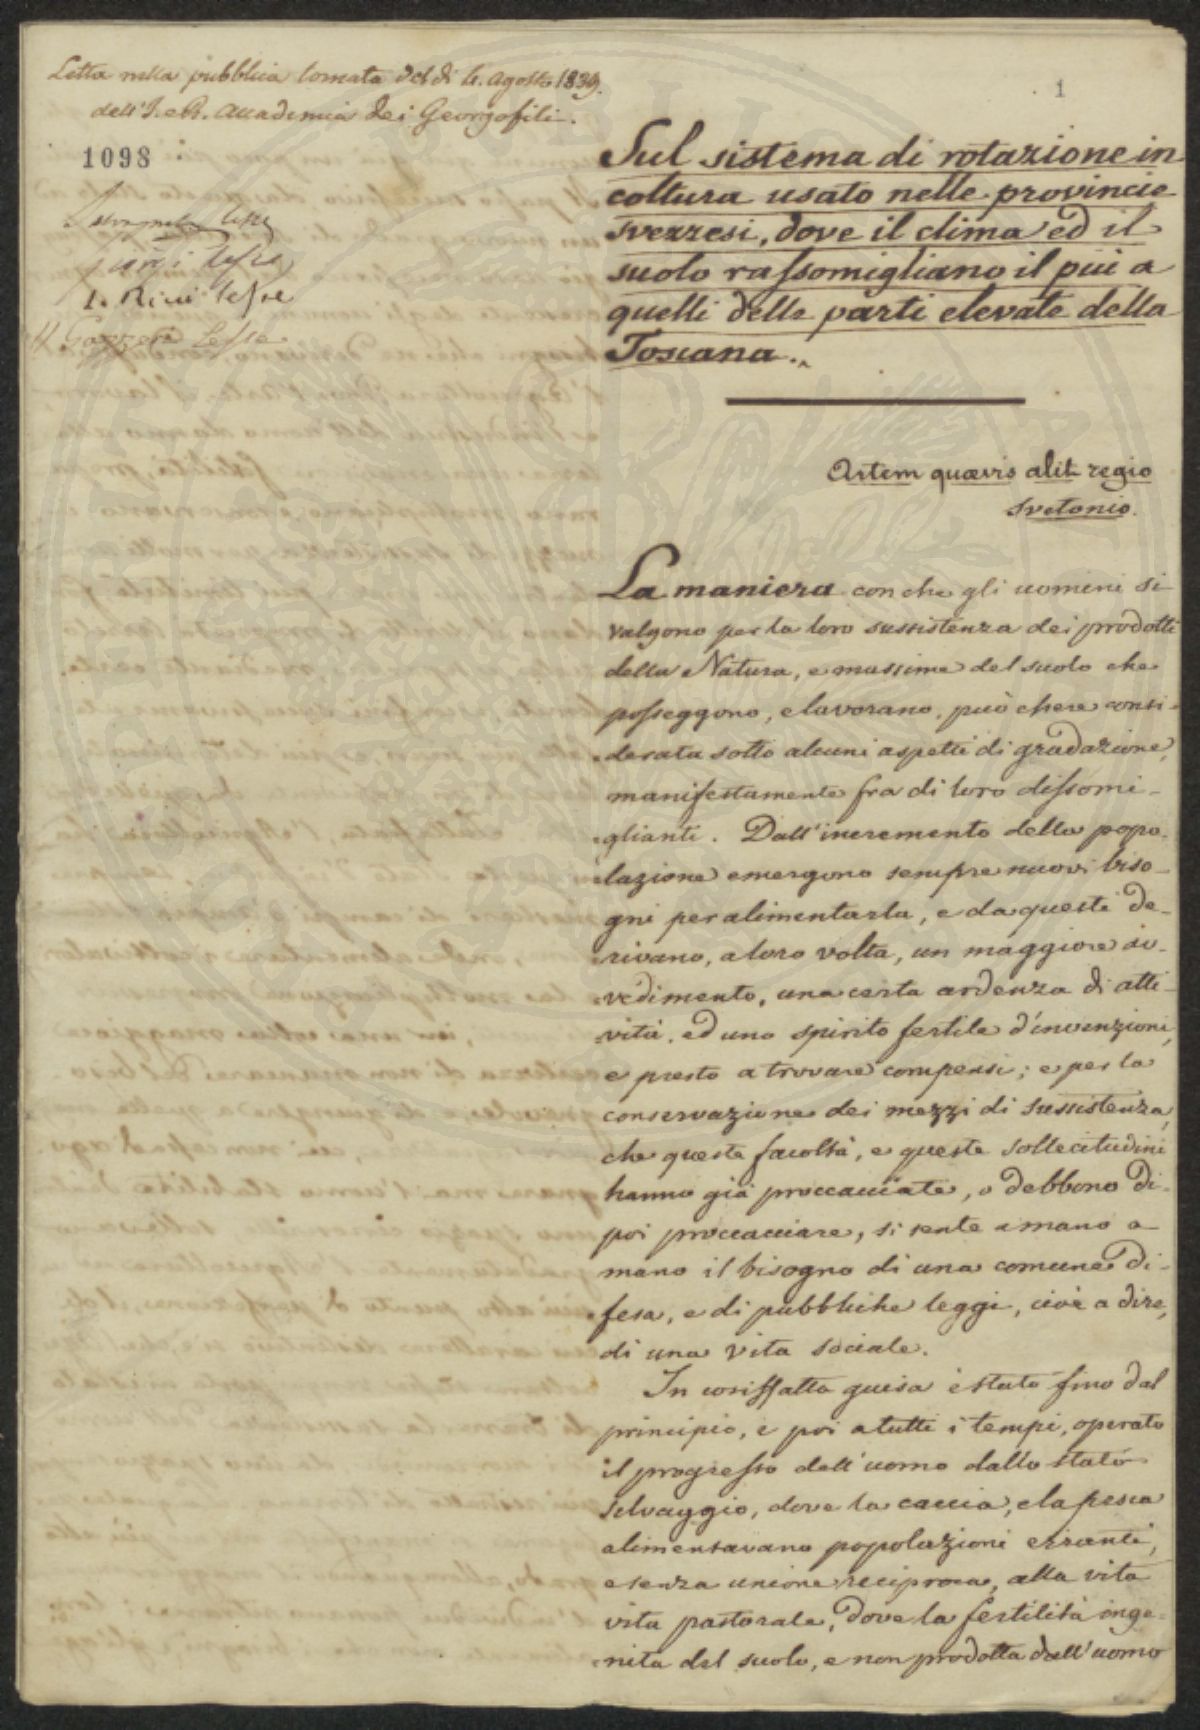 Letta nella pubblica tornata del dì 4. agosto 1839.
dell'I. e R. Accademia dei Georgofili.
1
1098
lesse
lesse
L. Ricci lesse
Gazzeri Lesse
Sul sistema di rotazione in
coltura usato nelle provincie
svezzesi, dove il clima ed il
suolo rassomigliano il più a
quelli delle parti elevate della
Toscana.
Artem quævis alit regio
Svetonio.
La maniera con che gli uomini si
valgono per la loro sussistenza dei prodotti
della Natura, e massime del suolo che
posseggono, e lavorano, può essere consi-
derata sotto alcuni aspetti di gradazione,
manifestamente fra di loro dissomi-
glianti. Dall'incremento della popo-
lazione emergono sempre nuovi biso-
gni per alimentarla, e da questi de-
rivano, a loro volta, un maggiore av-
vedimento, una certa ardenza di atti-
vità, ed uno spirito fertile d'invenzioni,
e presto a trovare compensi; e per la
conservazione dei mezzi di sussistenza,
che queste facoltà, e queste sollecitudini
hanno già proccacciate, o debbono di-
poi proccacciare, si sente a mano a
mano il bisogno di una comune di-
fesa, e di pubbliche leggi, cioè a dire,
di una vita sociale.
In cosiffatta guisa è stato fino dal
principio, e poi a tutti i tempi, operato
il progresso dell'uomo dallo stato
selvaggio, dove la caccia, e la pesca
alimentavano popolazioni erranti,
e senza unione reciproca, alla vita
vita pastorale, dove la fertilità inge-
nita del suolo, e non prodotta dall'uomo